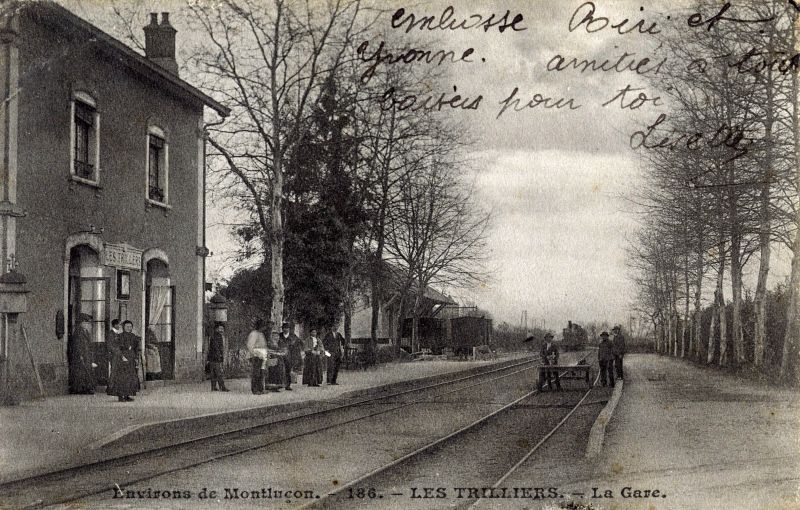 embrasse Riri et
Yvonne. amitiés à tous
baisers pour toi
LES TRILLERS
Environs de Montluçon. - 186. - LES TRILLIERS. - La Gare.